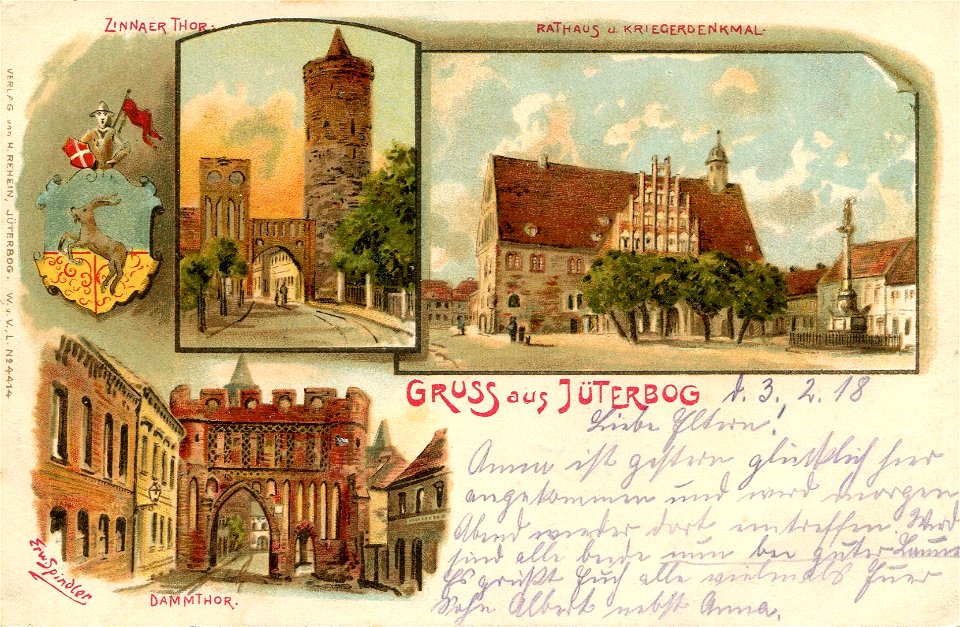 ZINNAER THOR.
RATHAUS u. KRIEGERDENKMAL.
VERLAG von H. REHEIN, JÜTERBOG. W. o. V., L. No 4414
GRUSS aus JÜTERBOG
d. 3. 2. 18
Liebe Eltern!
Anna ist gestern glücklich hier
angekommen und wird morgen
Abend wieder dort eintreffen. Wir
sind alle beide nun bei guter Laune
Es grüßt Euch alle vielmals Euer
Sohn Albert nebst Anna.
Erw. Spindler
DAMMTHOR.